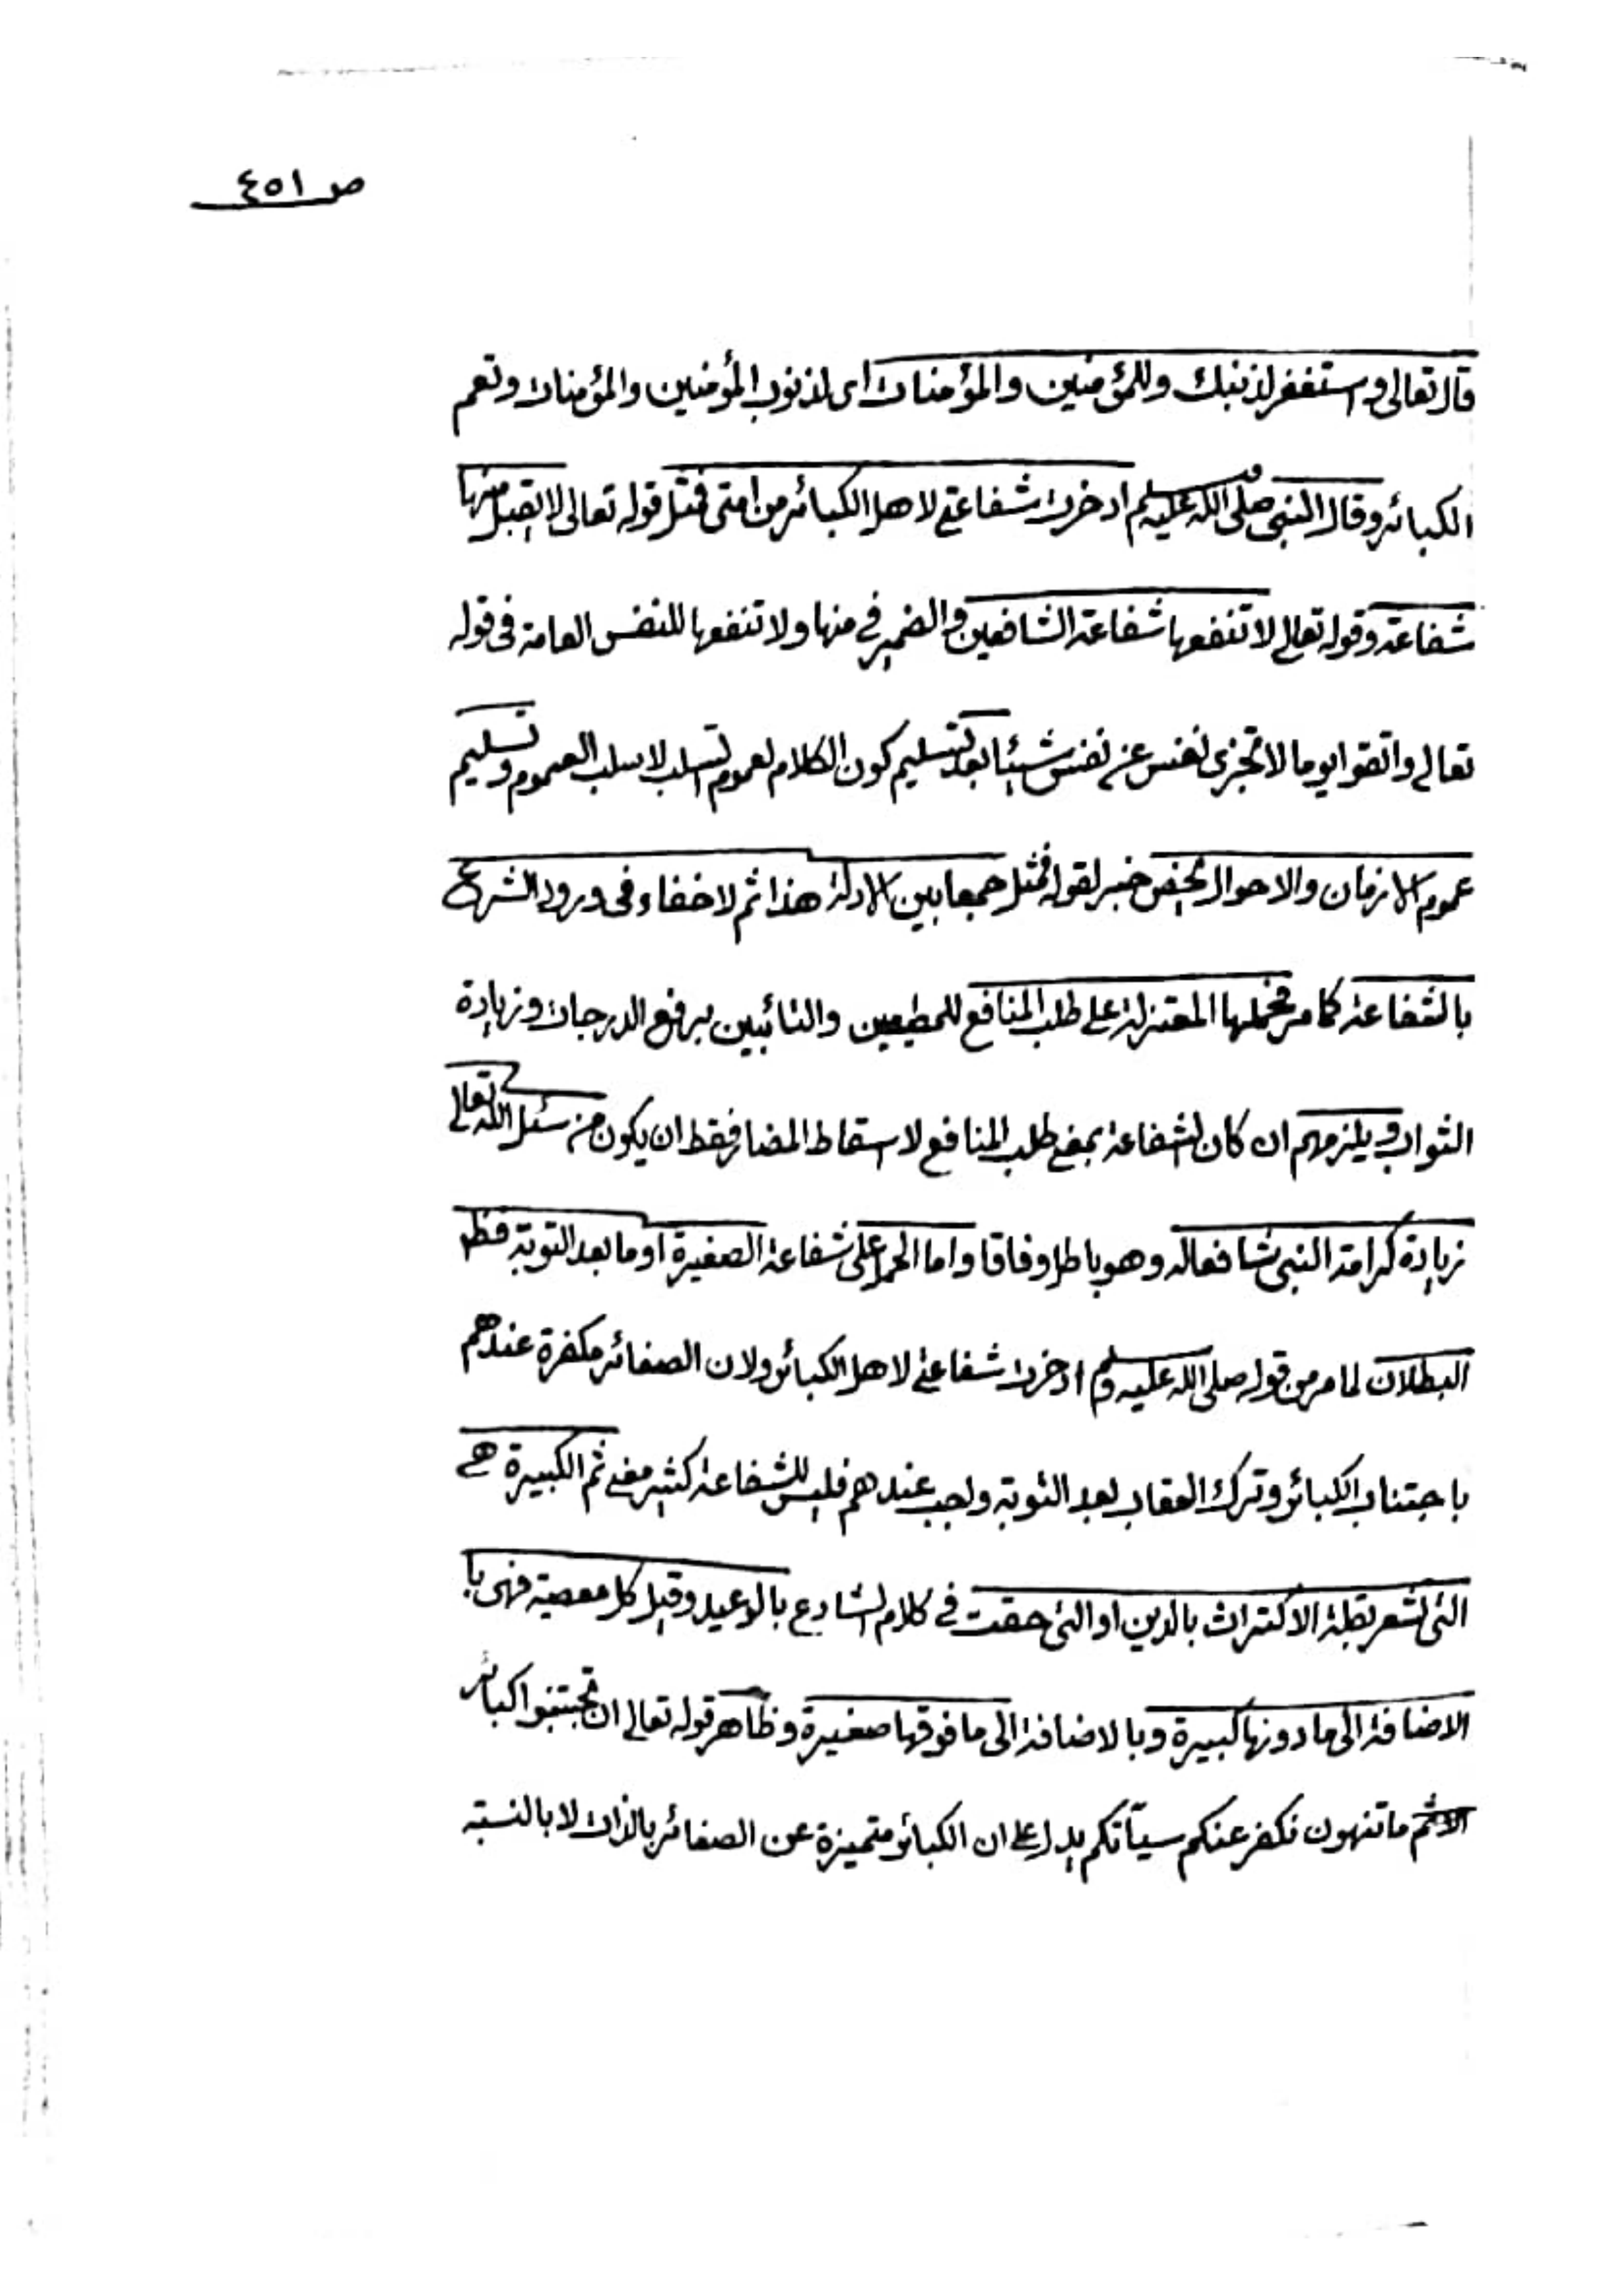 ص ٤٥١
قال تعالى واستغفر لذنبك وللمؤمنين والمؤمنات اى لذنوب المؤمنين والمؤمنات وتعم
الكبائر وقال النبى صلى الله عليه وسلم ادخرت شفاعتى لاهل الكبائر من امتى فمثل قوله تعالى لا يقبل منها
شفاعة وقوله تعالى لا تنفعها شفاعة الشافعين والضمير فى منها ولا تنفعها للنفس العامة فى قوله
تعالى واتقوا يوما لا تجزى نفس عن نفس شيئا بعد تسليم كون الكلام لعموم السلب لا سلب العموم وتسليم
عموم الازمان والاحوال يخص خبر لقوله فمثل جمعا بين الادلة هذا ثم لا خفاء فى ورود الشرع
بالشفاعة كما مر فحملها المعتزلة على طلب المنافع للمطيعين والتائبين برفع الدرجات وزيادة
الثواب ويلزمهم ان كان الشفاعة بمعنى طلب المنافع لا اسقاط المضار فقط ان يكون من سئل الله تعالى
زيادة كرامة النبى شافعا له وهو باطل وفاقا واما الحمل على شفاعة الصغيرة او ما بعد التوبة فظ
البطلان لما مر من قوله صلى الله عليه وسلم ادخرت شفاعتى لاهل الكبائر ولان الصغائر مكفرة عندهم
باجتناب الكبائر وترك العقاب بعد التوبة واجب عندهم فليس للشفاعة كثير معنى ثم الكبيرة هى
التى تشعر بقلة الاكتراث بالدين او التى حقت فى كلام الشارع بالوعيد وقيل كل معصية فهى با
الاضافة الى ما دونها كبيرة وبالاضافة الى ما فوقها صغيرة وظاهر قوله تعالى ان تجتنبوا كبائر
الاثم ما تنهون نكفر عنكم سيآتكم يدل على ان الكبائر متميزة عن الصغائر بالذات لا بالنسبة